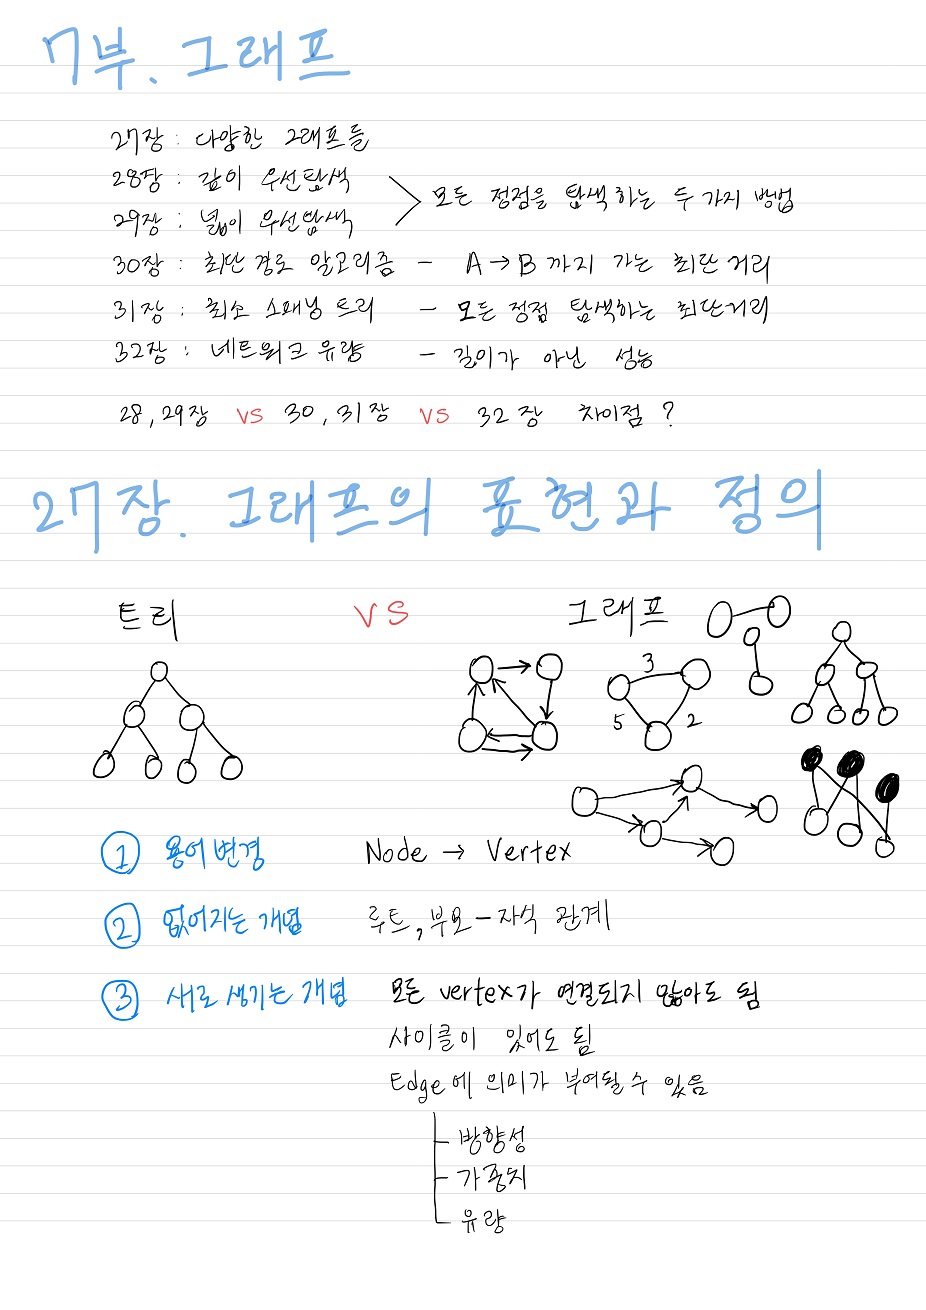 7부. 그래프
27장 : 다양한 그래프들
28장 : 깊이 우선탐색
29장 : 넓이 우선탐색
모든 정점을 탐색하는 두 가지 방법
30장 : 최단 경로 알고리즘 - A → B 까지 가는 최단 거리
31장 : 최소 스패닝 트리 - 모든 정점 탐색하는 최단거리
32장 : 네트워크 유량 - 길이가 아닌 성능
28, 29장 vs 30, 31장 vs 32장 차이점 ?
27장. 그래프의 표현과 정의
트리 vs 그래프
3
5 2
① 용어변경 Node → Vertex
② 없어지는 개념 루트, 부모-자식 관계
③ 새로 생기는 개념 모든 vertex가 연결되지 않아도 됨
사이클이 있어도 됨
Edge에 의미가 부여될 수 있음
방향성
가중치
유량